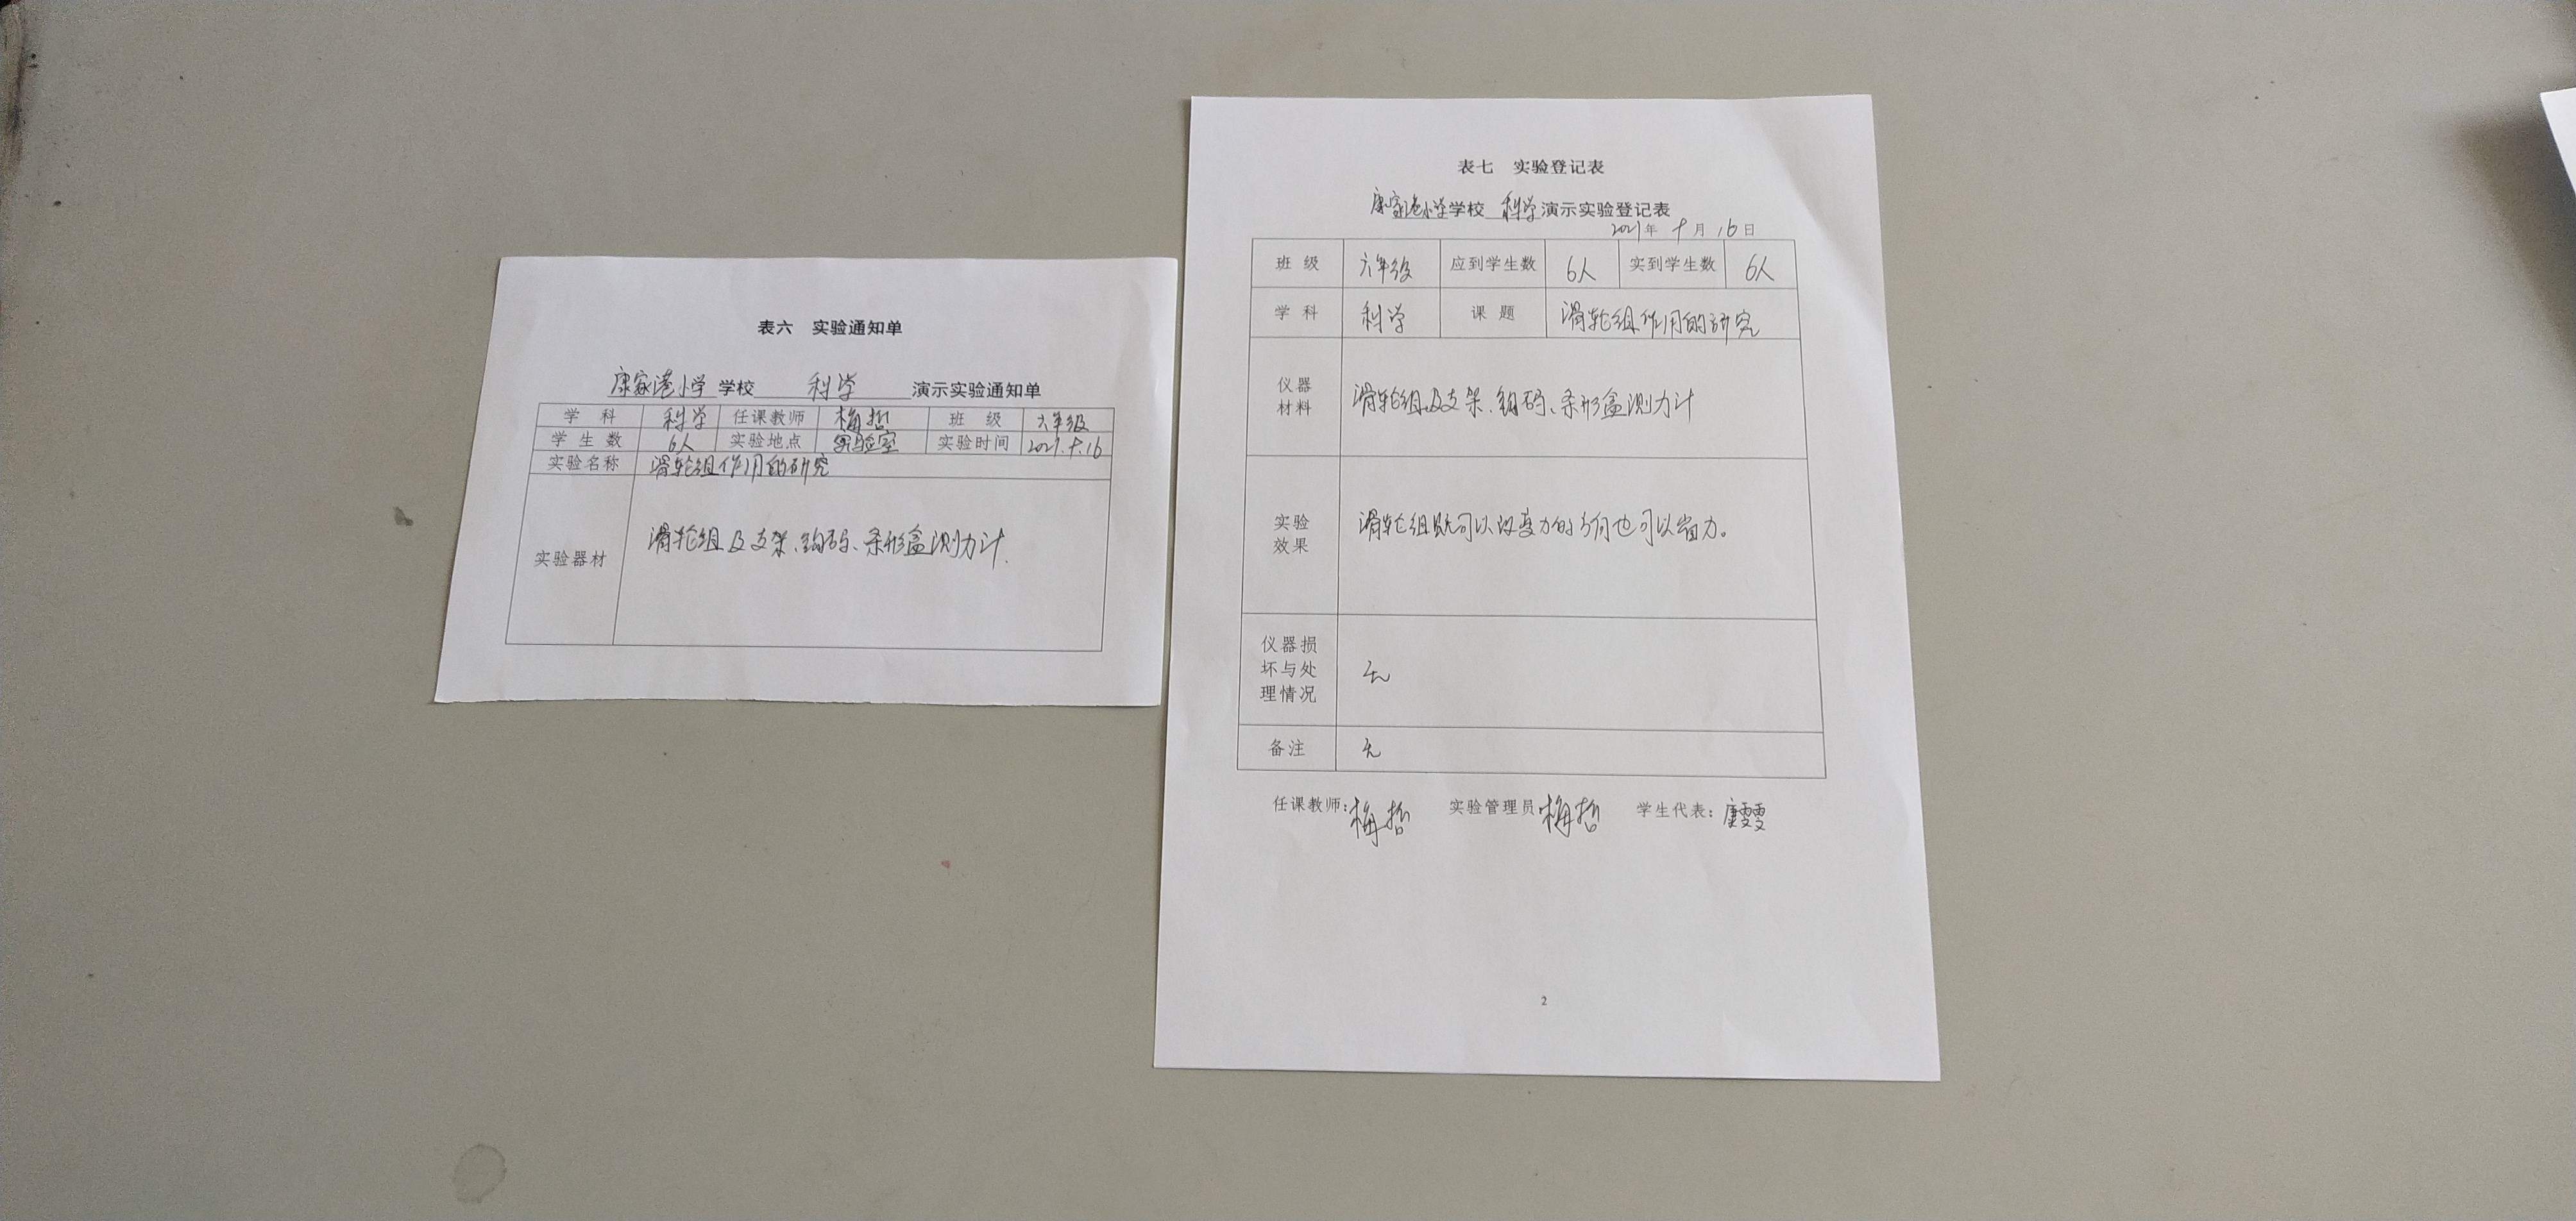 表六 实验通知单
康家港小学 学校 科学 演示实验通知单
学 科 科学 任课教师 梅哲 班 级 六年级
学 生 数 6人 实验地点 实验室 实验时间 2021.9.16
实验名称 滑轮组作用的研究
实验器材 滑轮组及支架、钩码、条形盒测力计.
表七 实验登记表
康家港小学学校 科学 演示实验登记表
2021年 9月 16日
班 级 六年级 应到学生数 6人 实到学生数 6人
学 科 科学 课 题 滑轮组作用的研究
仪器
材料
滑轮组及支架、钩码、条形盒测力计
实验
效果
滑轮组既可以改变力的方向也可以省力。
仪器损
坏与处
理情况
无
备注 无
任课教师:梅哲 实验管理员:梅哲 学生代表:康雯雯
2